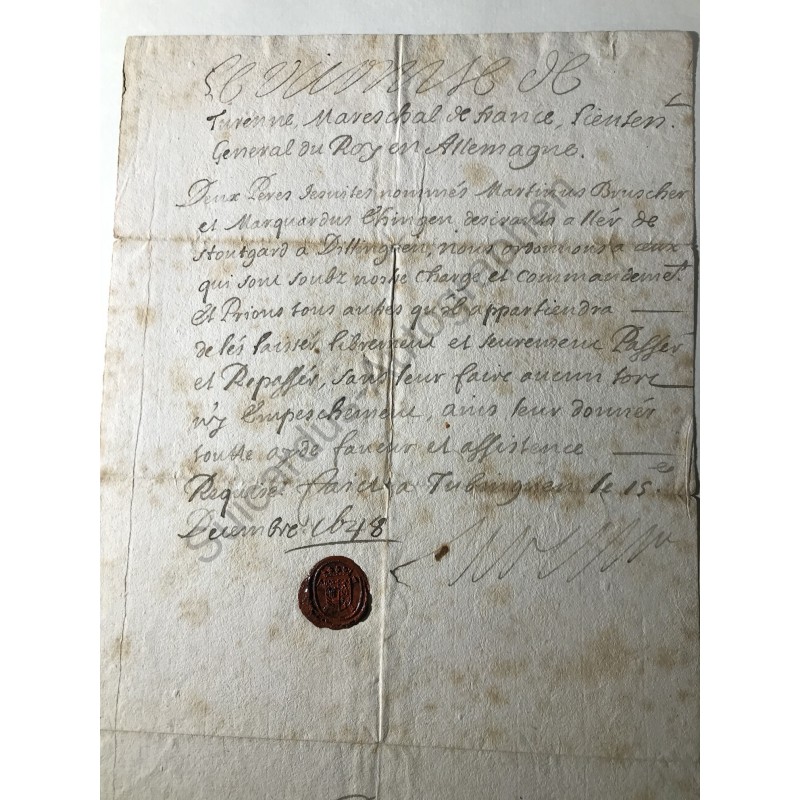 Le Viconte de
Turenne, Mareschal de france, Lieuten.t
General du Roy en Allemagne.
Deux Peres Jesuites nommés Martinus Bruscher
et Marquardus Ehingen desirants allér de
Stoutgard à Dillinguen, nous ordonnons a ceux
qui sont soubz nostre charge et commandemt.
Et Prions tous autres qu'il appartiendra
de les laissér librement et seurement Passér
et Repassér, sans leur faire aucun tort
ny Empeschement, ains leur donnér
toutte ayde faveur et assistence
Requise. faict a Tubinguen le 15e
Decembre. 1648